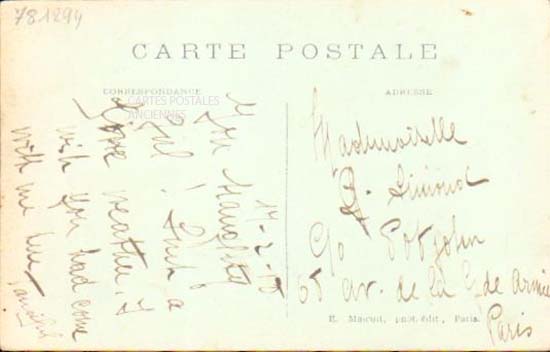 781294
CARTE POSTALE
CORRESPONDANCE
ADRESSE
CARTES POSTALES
ANCIENNES
14-2-
You Naughty
Girl! Such a
Love weather. I
wish you had come
with me here
Mademoiselle
Simond
c/o Potjohn
65 av. de la Gde Armée
Paris
E. Mascuit, phot.-édit., Paris.